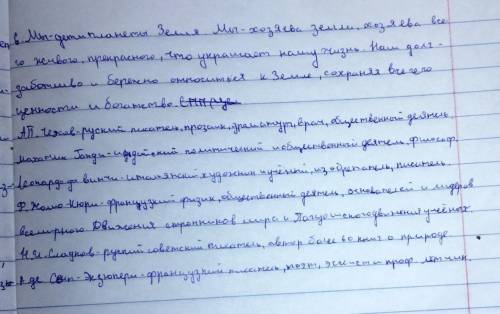 Мы-дети планеты Земля Мы-хозяева Земли, хозяева все
го живого, прекрасного, что украшает нашу жизнь. Наш долг-
заботливо и бережно относиться к Земле, сохраняя все его
ценности и богатство.
А.П. Чехов-руский писатель, прозаик, драматург, врач, общественной деятель.
Махатма Ганди-идийский политический и общественной деятель, философ.
Леонардо да винчи-итальянский художник и учёный, изобретатель, писатель.
Ф. Жолио-Кюри-французкий физик, общественной деятель, основателей и лидеров
всемирного Движения сторонников мира и Пагуошского движения учёных.
Н.И. Сладков-руский советский писатель, автор более 60 книг о природе
А.де Сент-Экзюпери-французкий писатель, поэт, эссеист и проф. лётчик.